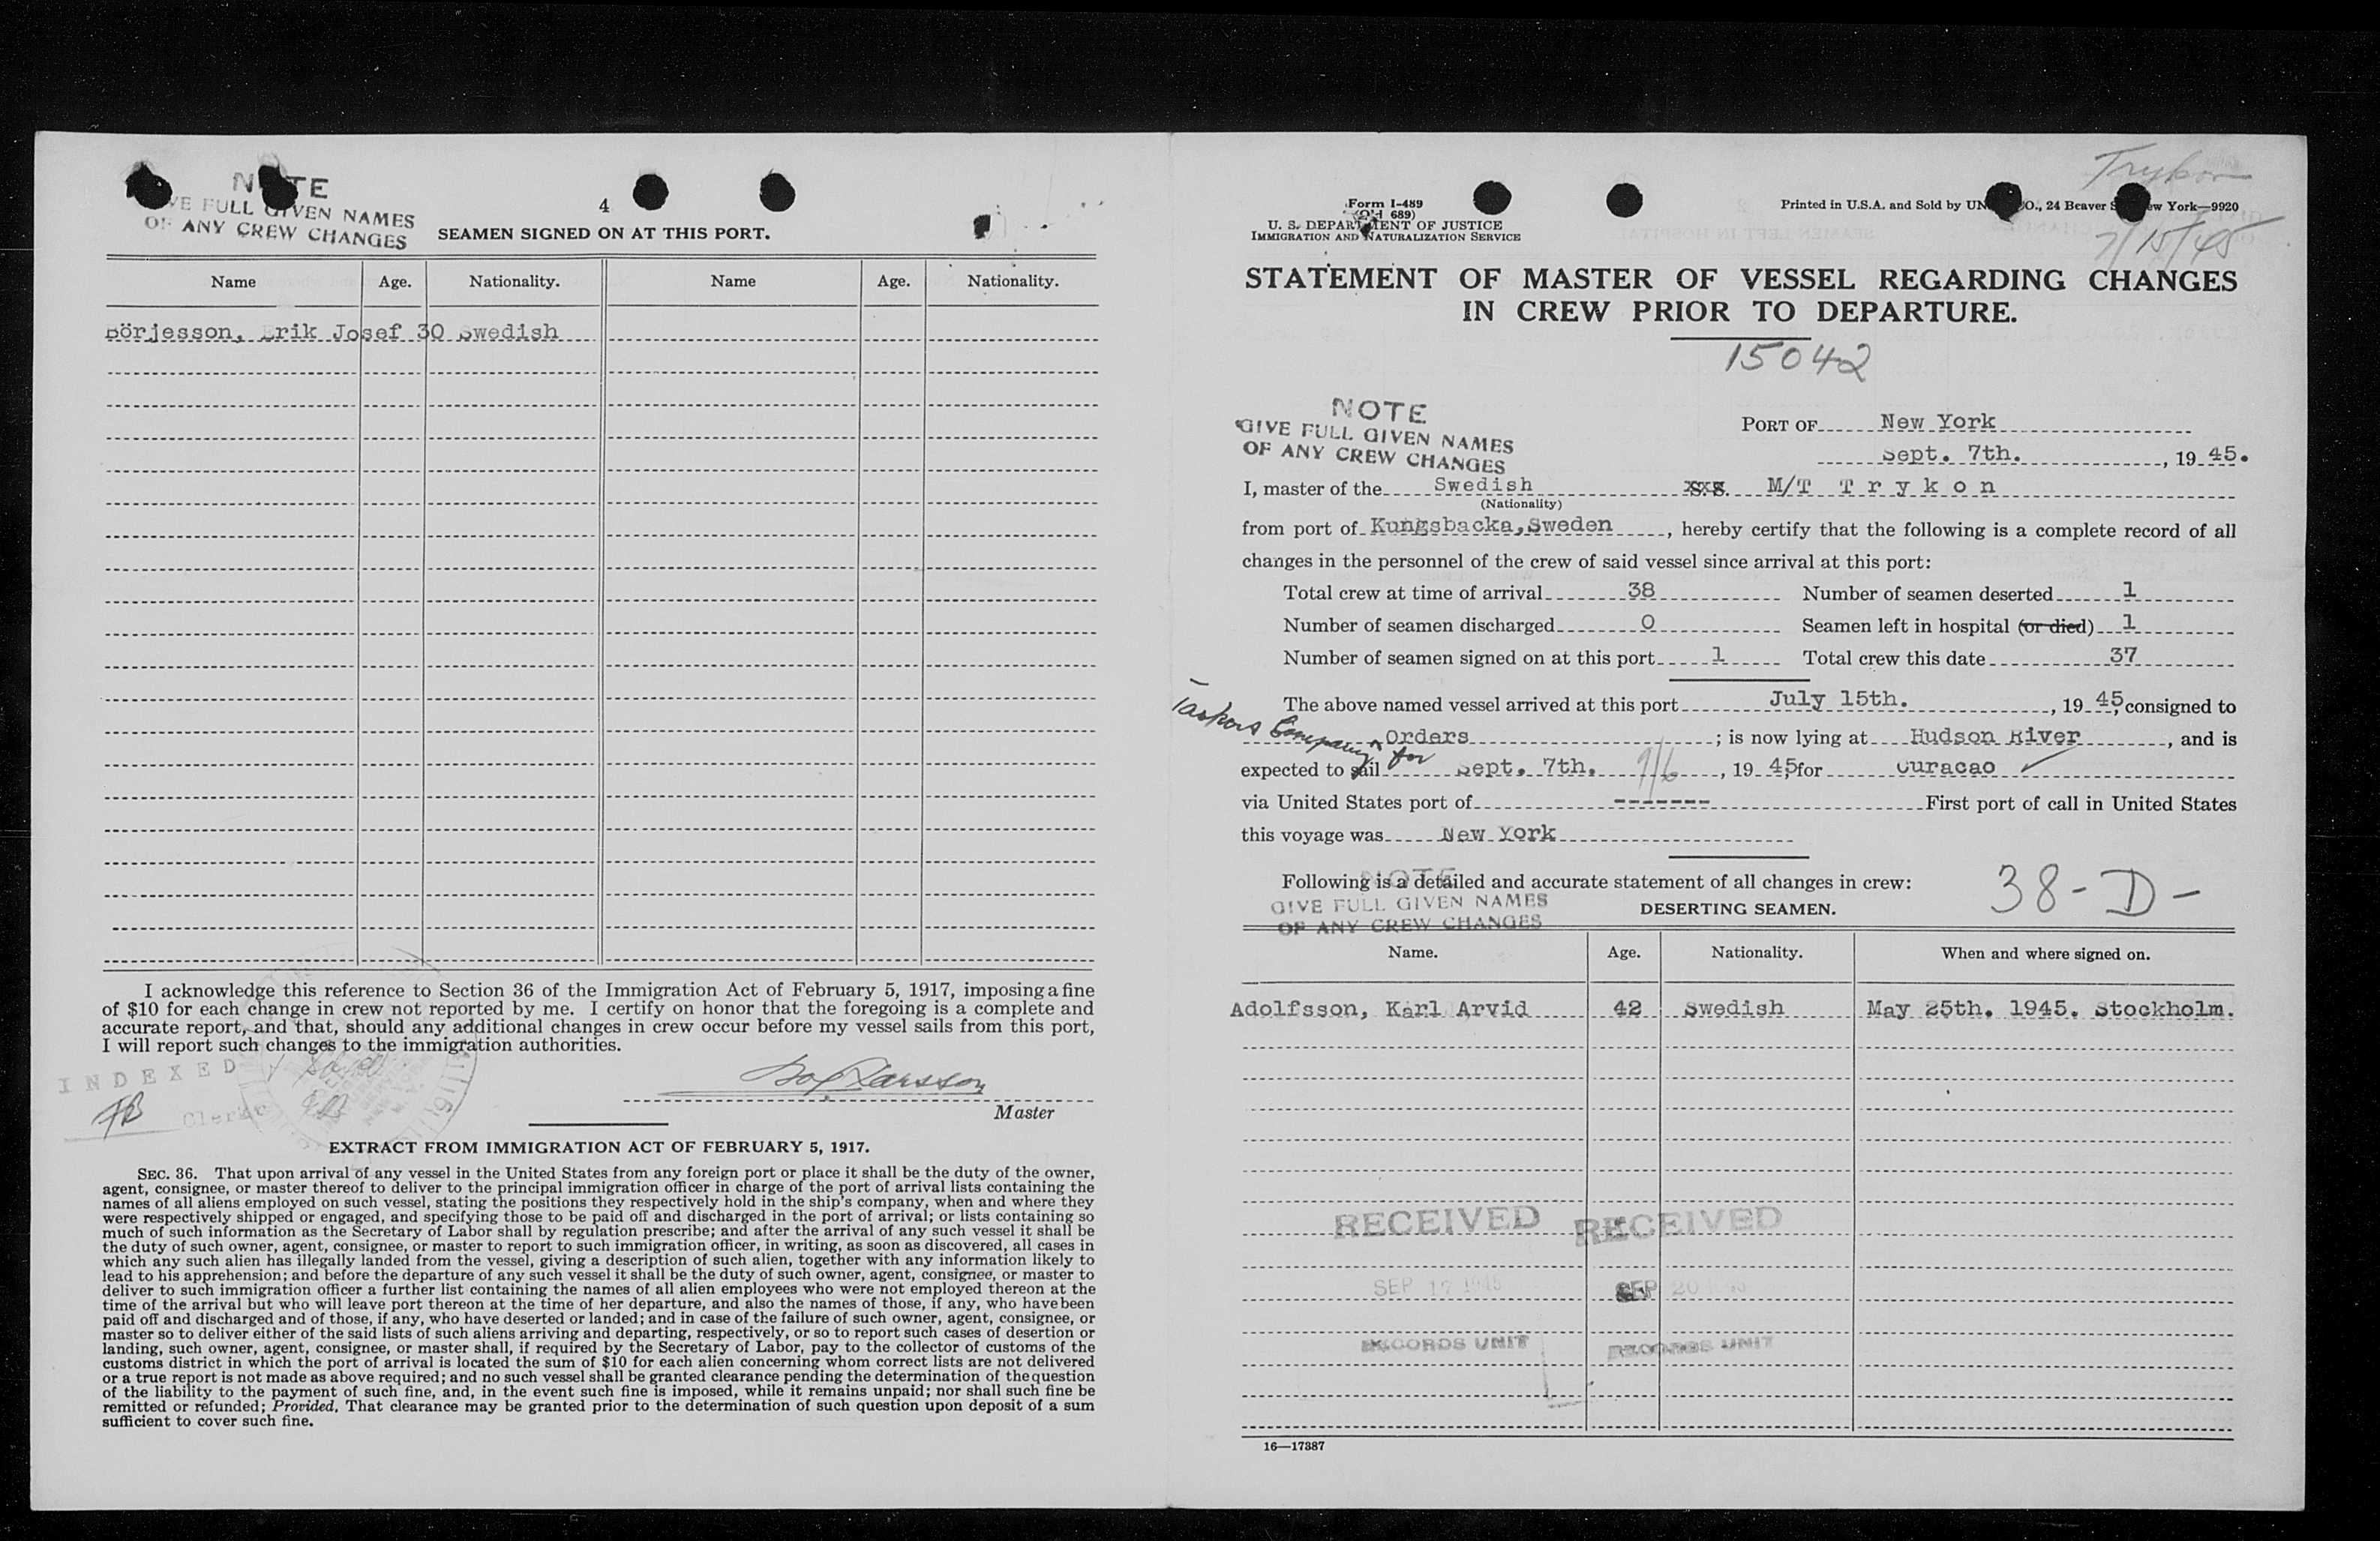 NOTE
GIVE FULL GIVEN NAMES
OF ANY CREW CHANGES
4
SEAMEN SIGNED ON AT THIS PORT.
Name Age. Nationality. Name Age. Nationality.
Börjesson, Erik Josef 30 Swedish
I acknowledge this reference to Section 36 of the Immigration Act of February 5, 1917, imposing a fine
of $10 for each change in crew not reported by me. I certify on honor that the foregoing is a complete and
accurate report, and that, should any additional changes in crew occur before my vessel sails from this port,
I will report such changes to the immigration authorities.
INDEXED
Clerk
Larsson
Master
EXTRACT FROM IMMIGRATION ACT OF FEBRUARY 5, 1917.
SEC. 36. That upon arrival of any vessel in the United States from any foreign port or place it shall be the duty of the owner,
agent, consignee, or master thereof to deliver to the principal immigration officer in charge of the port of arrival lists containing the
names of all aliens employed on such vessel, stating the positions they respectively hold in the ship's company, when and where they
were respectively shipped or engaged, and specifying those to be paid off and discharged in the port of arrival; or lists containing so
much of such information as the Secretary of Labor shall by regulation prescribe; and after the arrival of any such vessel it shall be
the duty of such owner, agent, consignee, or master to report to such immigration officer, in writing, as soon as discovered, all cases in
which any such alien has illegally landed from the vessel, giving a description of such alien, together with any information likely to
lead to his apprehension; and before the departure of any such vessel it shall be the duty of such owner, agent, consignee, or master to
deliver to such immigration officer a further list containing the names of all alien employees who were not employed thereon at the
time of the arrival but who will leave port thereon at the time of her departure, and also the names of those, if any, who have been
paid off and discharged and of those, if any, who have deserted or landed; and in case of the failure of such owner, agent, consignee, or
master so to deliver either of the said lists of such aliens arriving and departing, respectively, or so to report such cases of desertion or
landing, such owner, agent, consignee, or master shall, if required by the Secretary of Labor, pay to the collector of customs of the
customs district in which the port of arrival is located the sum of $10 for each alien concerning whom correct lists are not delivered
or a true report is not made as above required; and no such vessel shall be granted clearance pending the determination of the question
of the liability to the payment of such fine, and, in the event such fine is imposed, while it remains unpaid; nor shall such fine be
remitted or refunded; Provided, That clearance may be granted prior to the determination of such question upon deposit of a sum
sufficient to cover such fine.
Trykon
7/15/45
Form I-489
(Old 689)
U. S. DEPARTMENT OF JUSTICE
IMMIGRATION AND NATURALIZATION SERVICE
Printed in U.S.A. and Sold by UN CO., 24 Beaver St. New York—9920
STATEMENT OF MASTER OF VESSEL REGARDING CHANGES
IN CREW PRIOR TO DEPARTURE.
15042
NOTE
GIVE FULL GIVEN NAMES
OF ANY CREW CHANGES
PORT OF New York
Sept. 7th. , 19 45.
I, master of the Swedish M/T Trykon
(Nationality)
from port of Kungsbacka, Sweden , hereby certify that the following is a complete record of all
changes in the personnel of the crew of said vessel since arrival at this port:
Total crew at time of arrival 38 Number of seamen deserted 1
Number of seamen discharged 0 Seamen left in hospital (or died) 1
Number of seamen signed on at this port 1 Total crew this date 37
The above named vessel arrived at this port July 15th. , 19 45, consigned to
Company for Orders ; is now lying at Hudson River , and is
expected to sail Sept. 7th. 9/6 , 19 45, for Curacao
via United States port of -------- First port of call in United States
this voyage was New York
Following is a detailed and accurate statement of all changes in crew:
38-D-
NOTE
GIVE FULL GIVEN NAMES
OF ANY CREW CHANGES
DESERTING SEAMEN.
Name. Age. Nationality. When and where signed on.
Adolfsson, Karl Arvid 42 Swedish May 25th. 1945. Stockholm.
RECEIVED RECEIVED
SEP 17 1945 SEP 20 1945
RECORDS UNIT RECORDS UNIT
16—17387